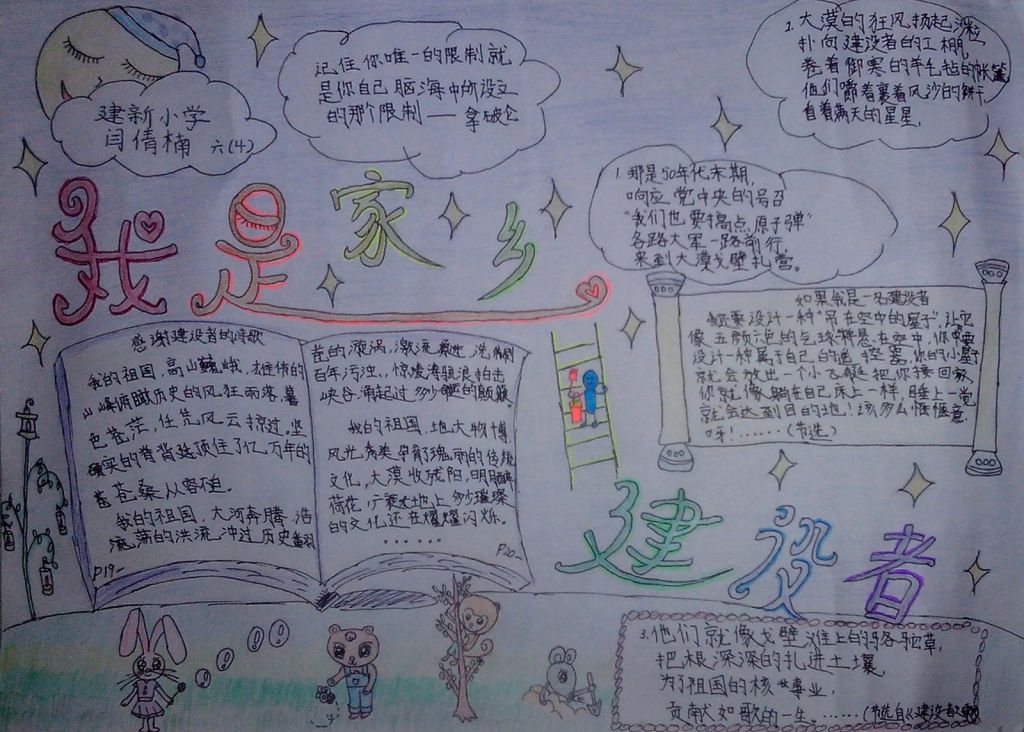 建新小学
闫倩楠 六(4)
记住你唯一的限制就
是你自己脑海中所设立
的那个限制——拿破仑
2.大漠的狂风扬起沙粒
扑向建设者的工棚,
卷着御寒的羊毛毡的帐篷
他们嚼着裹着风沙的饼干,
自着满天的星星,
1.那是50年代末期,
响应党中央的号召
"我们也要搞点原子弹"
各路大军一路前行,
来到大漠戈壁扎营。
我是家乡
感谢建设者的诗歌
我的祖国,高山巍峨,
山峰俯瞰历史的风狂雨落,暮
色苍茫,任凭风云掠过。坚
实的脊背顶住了亿万年的
苍桑从容自。
我的祖国,大河奔腾,浩
荡的洪流,冲过历史翻
P19-
卷的漩涡,激流
百年污浊,惊涛骇浪拍击
峡谷涌起过多少的颠簸。
我的祖国,地大物博
风光秀美孕育了瑰丽的传统
文化,大漠收残阳,明月醉
荷花,广袤大地上多少璀璨
的文化还在熠熠闪烁。
......
P20-
如果我是一名建设者
我要设计一种"吊在空中的屋子",让它
像五颜六色的气球飘悬在空中,你
设计一种属于自己的遥控器,你的小屋子
就会放出一个小飞艇把你接回家
你就像躺在自己床上一样,睡上一觉
就会达到目的地!该多么惬惬意
呀!......(节选)
建设者
3.他们就像戈壁滩上的骆驼草,
把根深深的扎进土壤
为了祖国的核事业,
贡献如歌的一生。......(节选自《建设者